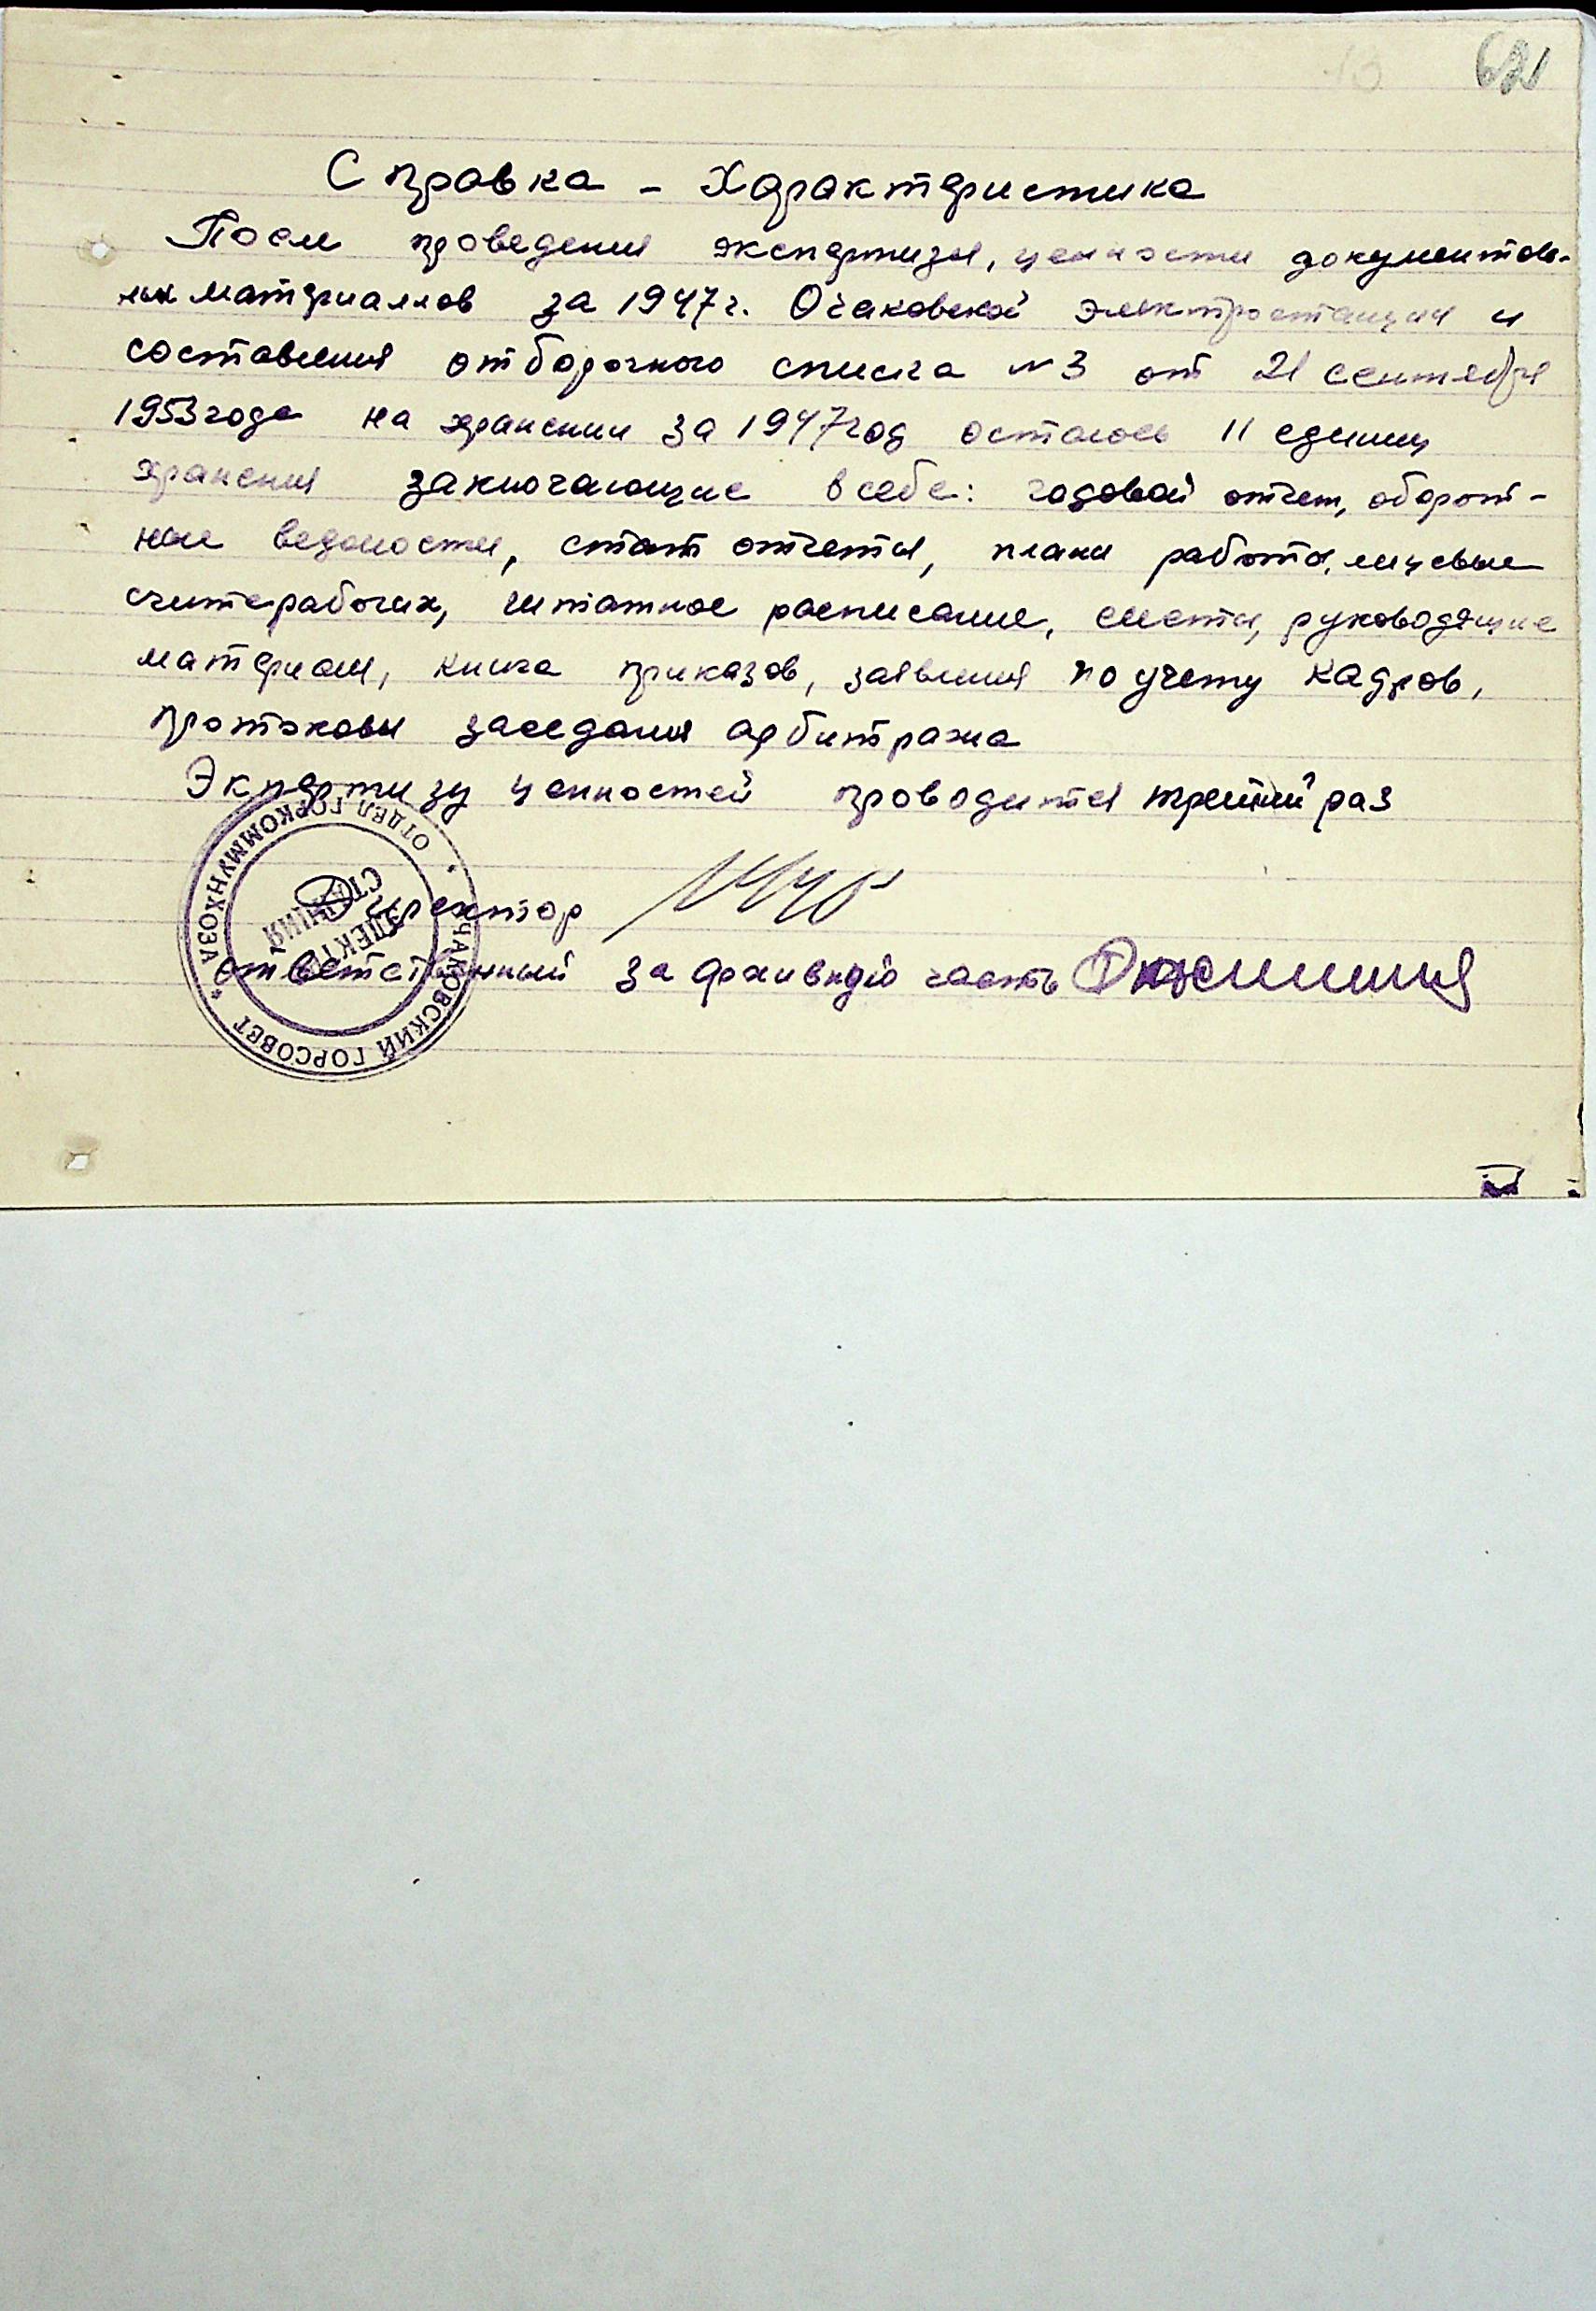 Справка - Характеристика
После проведения экспертизы, ценности документаль-
ных материаллов за 1947 г. Очаковской электростанции и
составления отборочного списка № 3 от 21 сентября
1953 года на хранении за 1947 год осталось 11 единиц
хранения заключающие в себе: годовой отчет, оборот-
ные ведомости, стат отчеты, планы работы, лицевые
счите рабочих, штатное расписание, сметы, руководящие
материалы, книга приказов, заявления по учету кадров,
протоколы заседания арбитража
Экпертизу ценностей проводится третий раз
Директор
ответственный за архивную часть
ОЧАКОВСКИЙ ГОРСОВЕТ * ОТДЕЛ ГОРКОММУНХОЗА *
ЭЛЕКТРО
СТАНЦИЯ